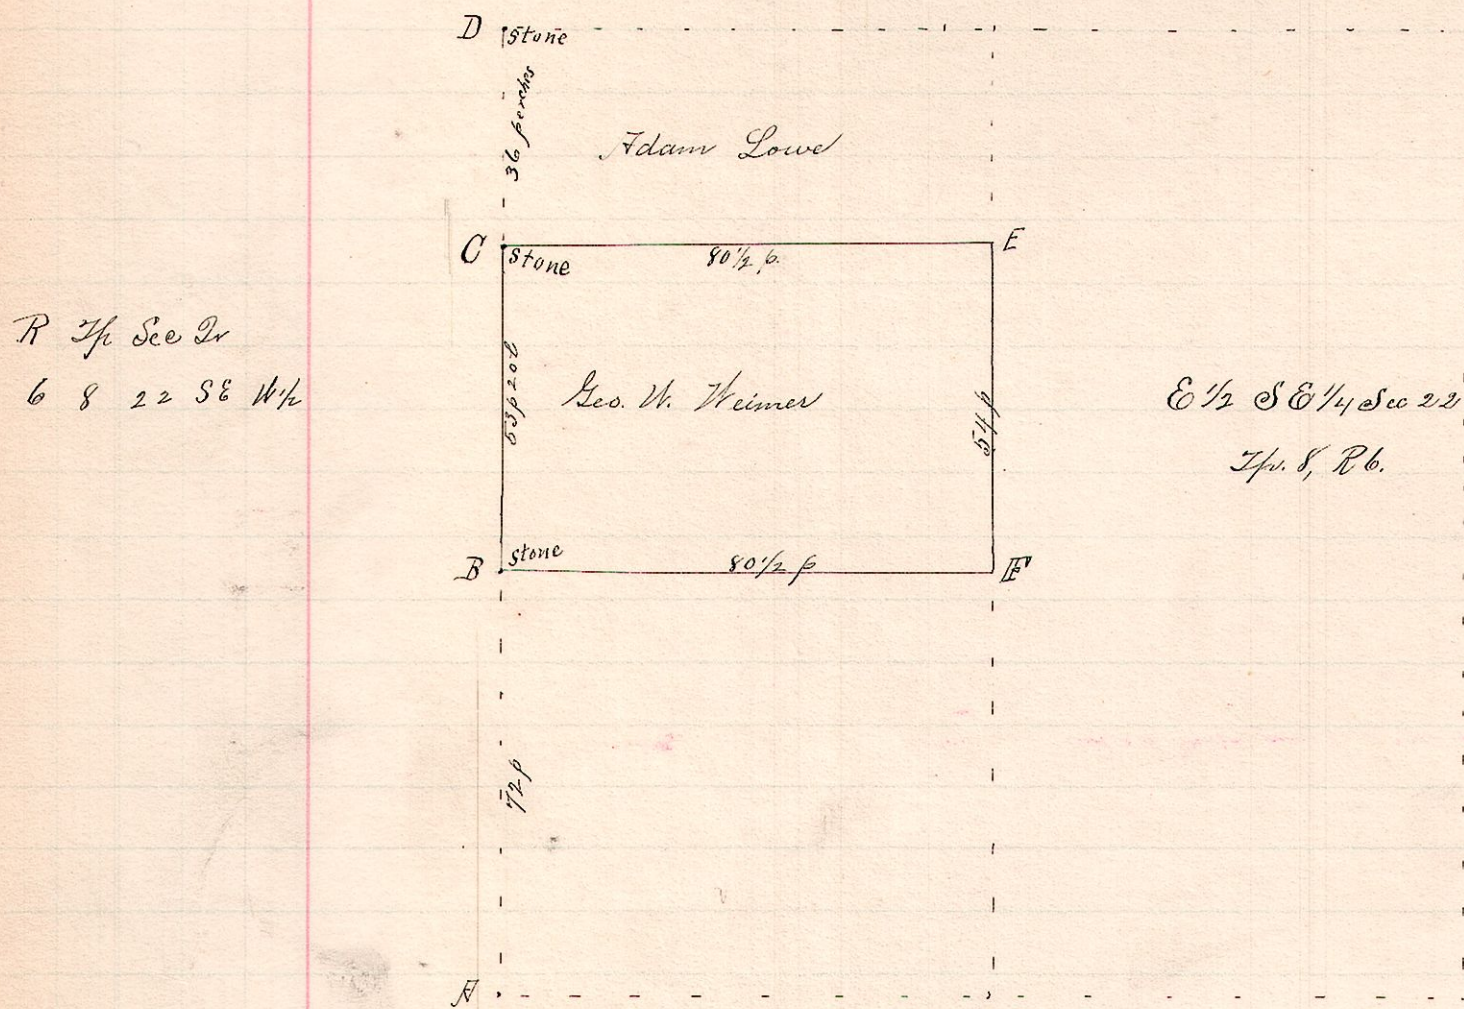 D Stone
36 perches
Adam Lowe
C Stone 80 1/2 p. E
R Tp Sec Qr
6 8 22 SE W 1/2
53p 20l
Geo. W. Weimer
54 p
E 1/2 SE 1/4 Sec 22
Tp. 8, R 6.
B Stone 80 1/2 p F
72 p
A